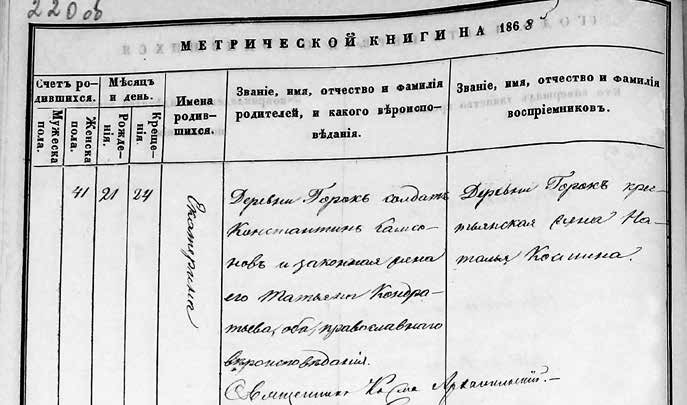 220 об
МЕТРИЧЕСКОЙ КНИГИ НА 1868
Счетъ ро-
дившихся.
Мужеска
пола.
Женска
пола.
Мѣсяцъ
и день.
Рожде-
нія.
Креще-
нія.
Имена
родив-
шихся.
Званіе, имя, отчество и фамилія
родителей, и какого вѣроиспо-
вѣданія.
Званіе, имя, отчество и фамилія
воспріемниковъ.
41 21 24
Екатерина
Деревни Горокъ солдатъ
Константинъ Самсо-
новъ и законная жена
его Татьяна Кондра-
тьева, оба православнаго
вѣроисповѣданія.
Деревни Горокъ крес-
тьянская жена На-
талья Косьмина.
Священникъ Косма Архангельскій.